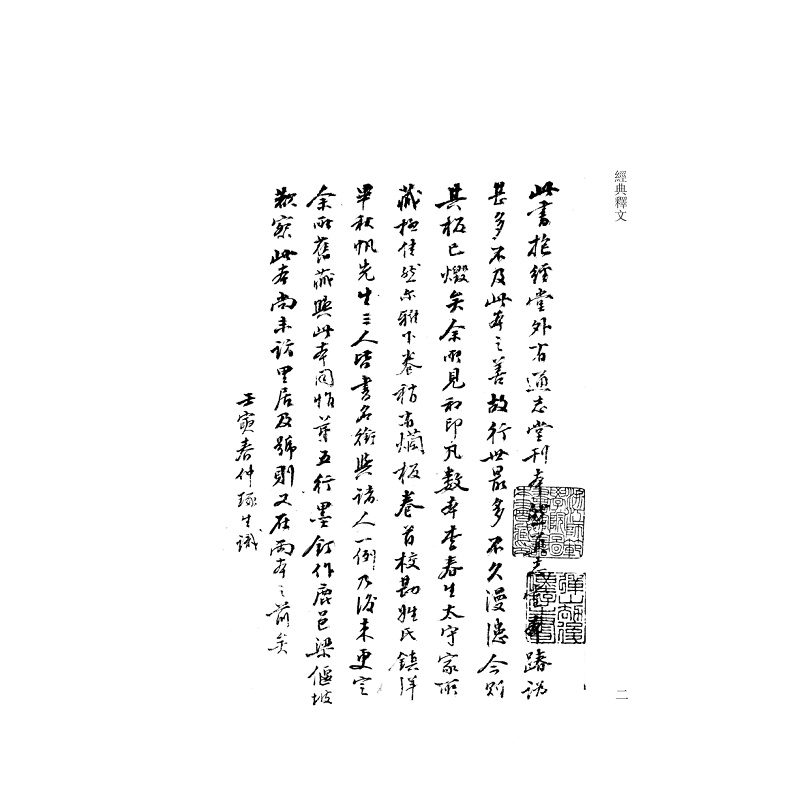 經典釋文
此書抱經堂外省通志堂刊本然通志堂本踳譌
甚多不及此本之善故行世最多不久漫漶今則
其板已燬矣余所見初印凡數本李春生太守家所
藏極佳然尔雅下卷稍有爛板卷首校勘姓氏鎮洋
畢秋帆先生三人皆書名銜與諸人一例乃後來更定
余所舊藏與此本同惟第五行墨釘作鹿邑梁偃坡
敬案此本尚未詻里居及號則又在兩本之前矣
壬寅春仲琢生識
二